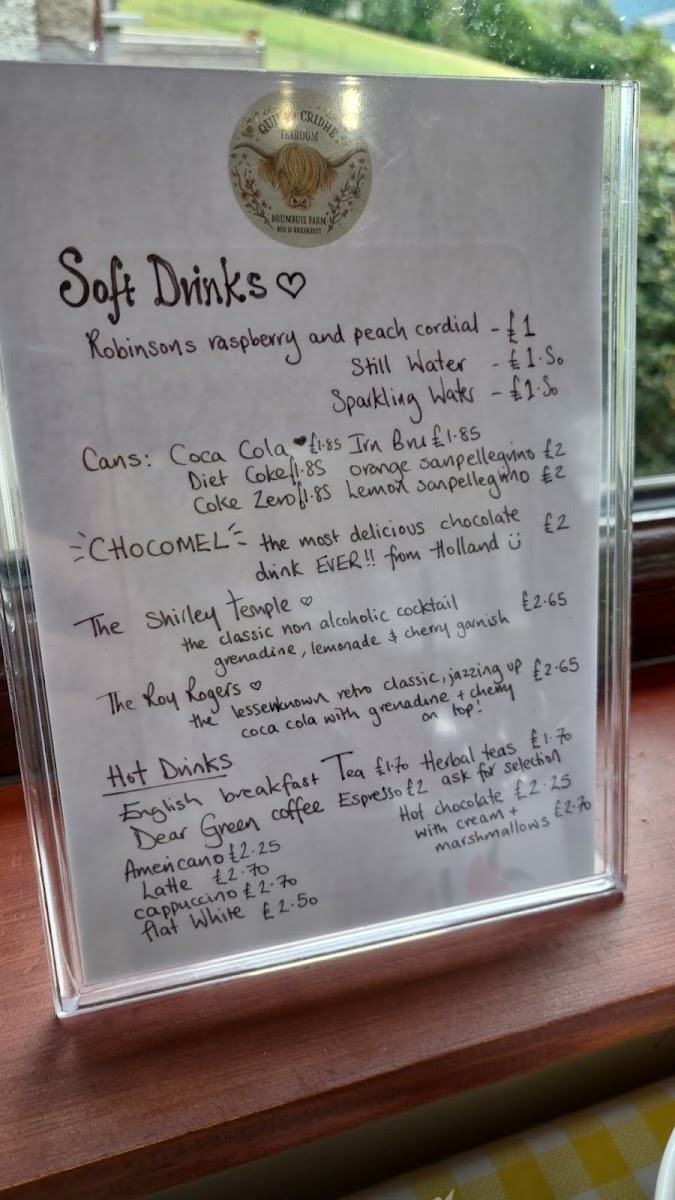 CRIDHE
TEAROOM
DRUMBUIE FARM
BED & BREAKFAST
Soft Drinks ♡
Robinsons raspberry and peach cordial - £1
Still Water - £1.50
Sparkling Water - £1.50
Cans: Coca Cola £1.85 Irn Bru £1.85
Diet Coke £1.85 orange sanpellegrino £2
Coke Zero £1.85 Lemon sanpellegrino £2
CHOCOMEL - the most delicious chocolate £2
drink EVER!! from Holland ü
The Shirley Temple ♡
the classic non alcoholic cocktail £2.65
grenadine, lemonade & cherry garnish
The Roy Rogers ♡
the lessenknown retro classic, jazzing up £2.65
coca cola with grenadine + cherry
on top!
Hot Drinks
English breakfast Tea £1.70 Herbal teas £1.70
Dear Green coffee Espresso £2 ask for selection
Americano £2.25 Hot chocolate £2.25
Latte £2.70 with cream +
cappuccino £2.70 marshmallows £2.70
flat White £2.50